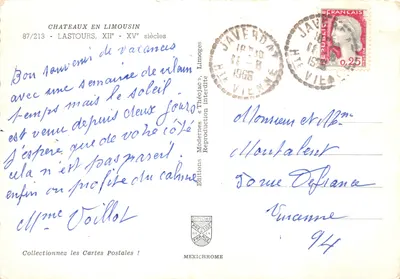 CHATEAUX EN LIMOUSIN
87/213 - LASTOURS. XIIe - XVe siècles
Bon souvenir de vacances
avec une semaine de vilain
temps mais le soleil
est venu depuis deux jours
j'espère que de votre côté
cela n'est pas pareil
enfin on profite du calme
Mme Voillot
Collectionnez les Cartes Postales !
Editions Modernes « Théojac », Limoges
Reproduction interdite
MEXICHROME
JAVERDAT
18H
11-8
1966
HTE VIENNE
JAVERDAT
18H
11-8
HTE VIENNE
FRANÇAISE
0,25
Monsieur et Mme
Montalent
50 rue De France
Vincennes
94